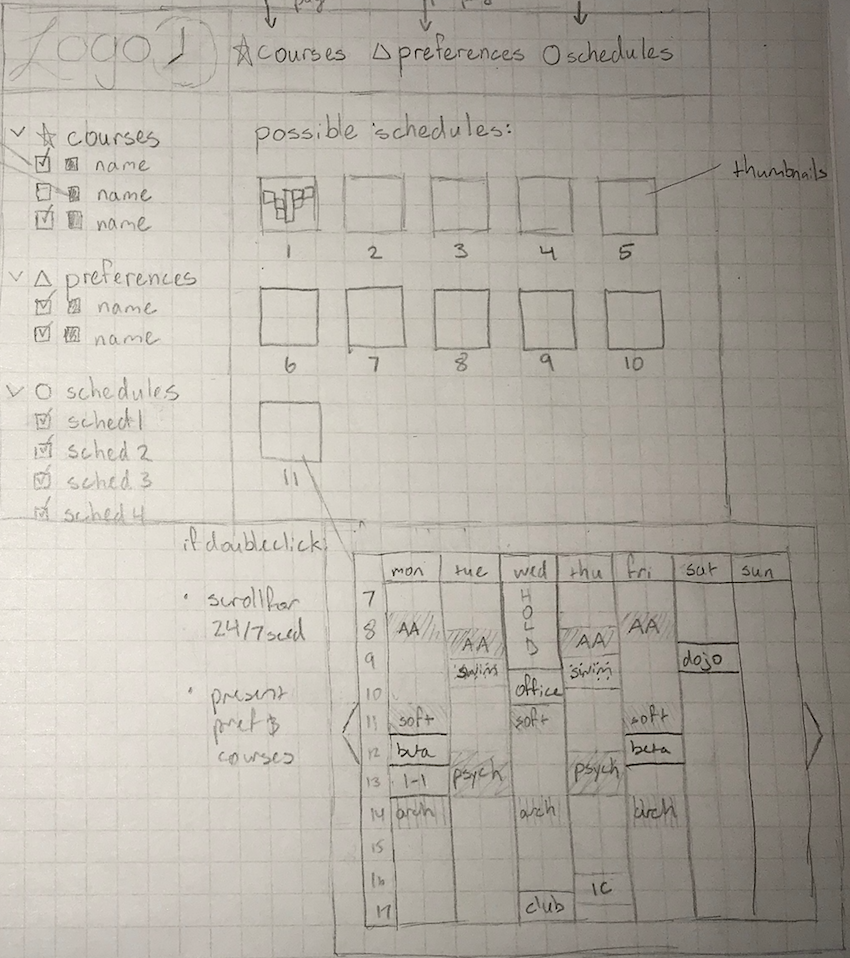 Logo
courses preferences schedules
courses
name
name
name
preferences
name
name
schedules
sched 1
sched 2
sched 3
sched 4
possible schedules:
thumbnails
1 2 3 4 5
6 7 8 9 10
11
if doubleclick:
• scroll for
24/7 sced
• present
pref &
courses
mon tue wed thu fri sat sun
7 HOLD
8 AA AA AA AA
9 swim swim dojo
10 office
11 soft soft soft
12 beta beta
13 1-1 psych psych
14 arch arch arch
15
16 1C
17 club